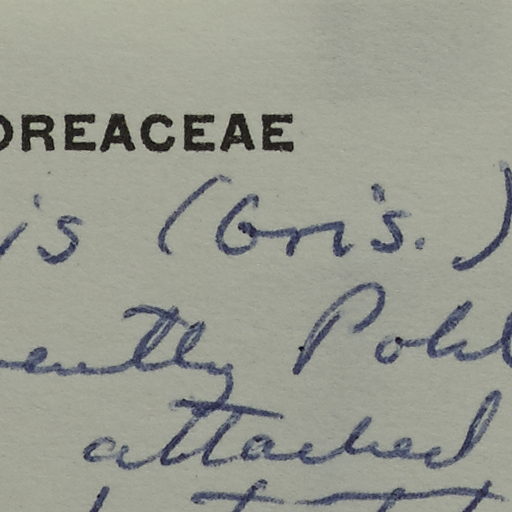 OREACEAE
is (Gris.)
ently Pohl
attached